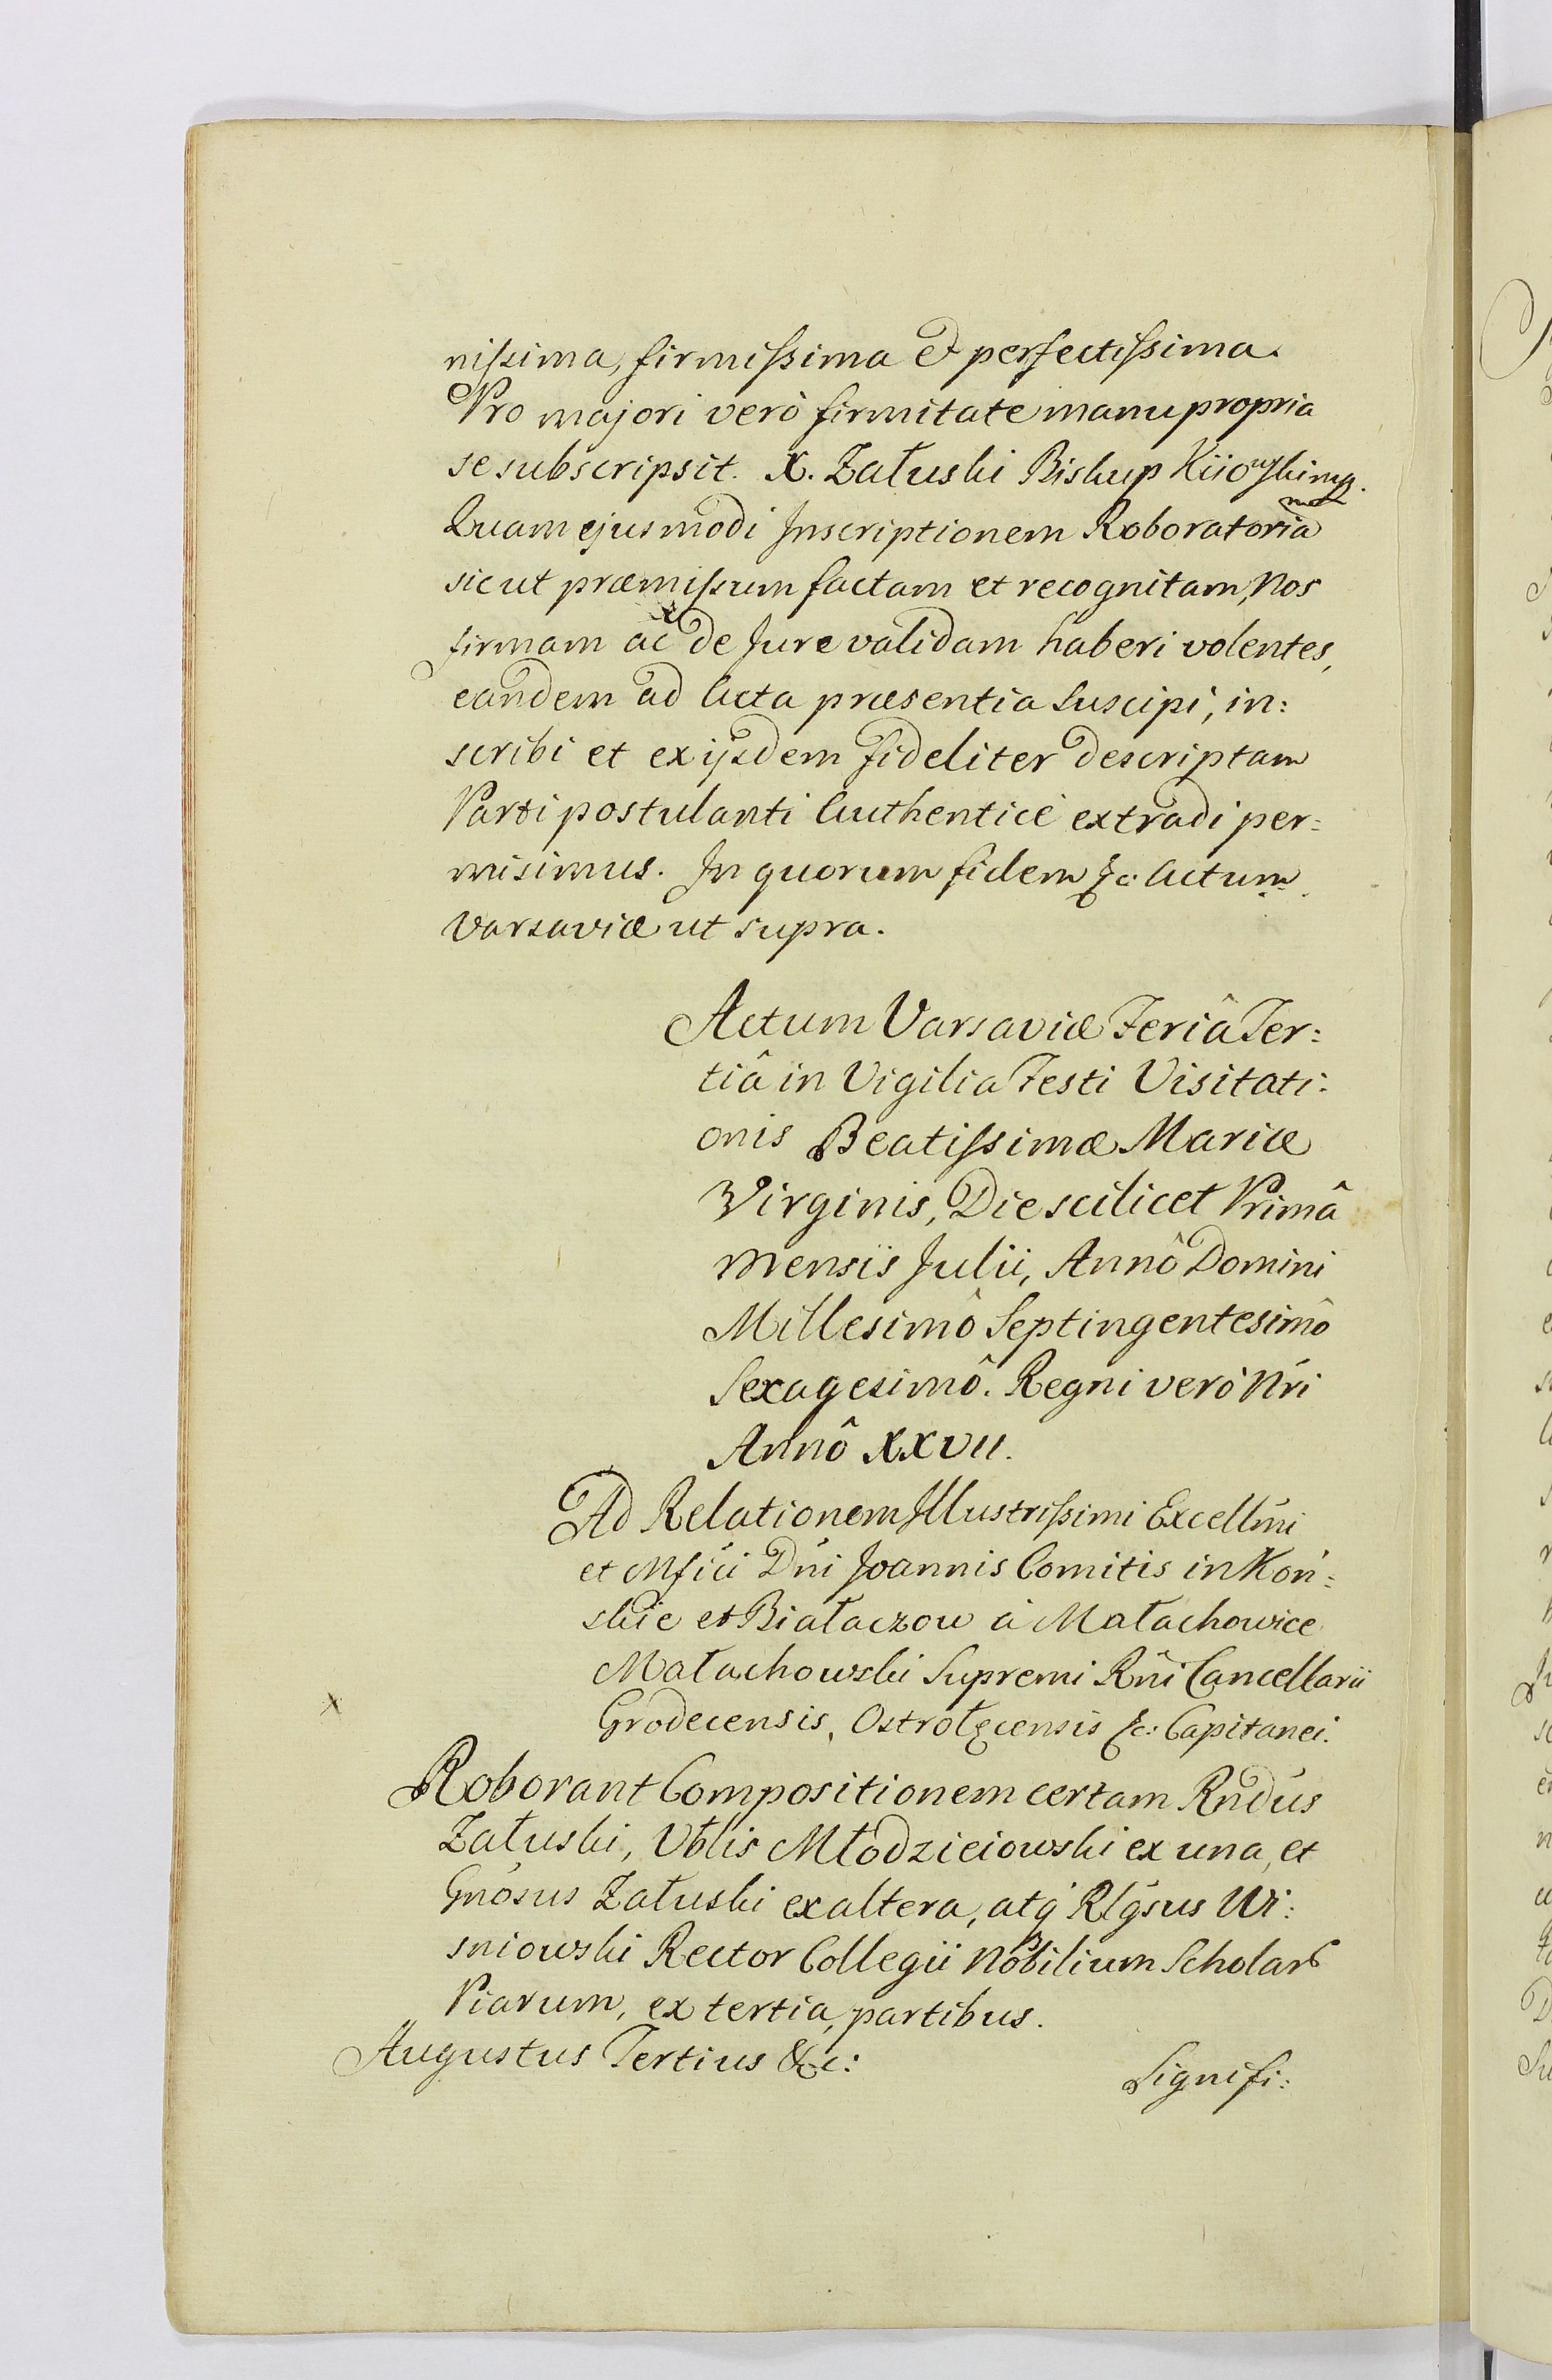 nissima, firmissima et perfectissima.
Pro majori verò firmitate manu propria
se subscripsit. X. Załuski Biskup Kiiowski mp.
Quam ejusmodi Inscriptionem Roboratoriam
sicut præmissum factam et recognitam, Nos
firmam ac de Jure validam haberi volentes,
eandem ad Acta præsentia Suscipi, in:
scribi et ex ijsdem fideliter descriptam
Parti postulanti Authenticè extradi per:
misimus. In quorum fidem &c: Actum
Varsaviæ ut supra.
Actum Varsaviæ Feriâ Ter:
tiâ in Vigilia Festi Visitati:
onis Beatissimæ Mariæ
Virginis, Die scilicet Primâ
Mensis Julii, Annô Domini
Millesimô Septingentesimô
Sexagesimô. Regni verò Nri
Annô XXVII.
Ad Relationem Illustrissimi Excellmi
et Mfici Dni Joannis Comitis in Koń:
skie et Białaczow à Małachowice
Małachowski Supremi Rni Cancellarii
Grodecensis, Ostrołęcensis &c: Capitanei.
x
Roborant Compositionem certam Rndus
Załuski, Vblis Młodzieiowski ex una, et
Gnosus Załuski ex altera, atq Rlgsus Wi:
sniowski Rector Collegii Nobilium Scholar
Piarum, ex tertia, partibus.
Augustus Tertius &c:
Signifi: